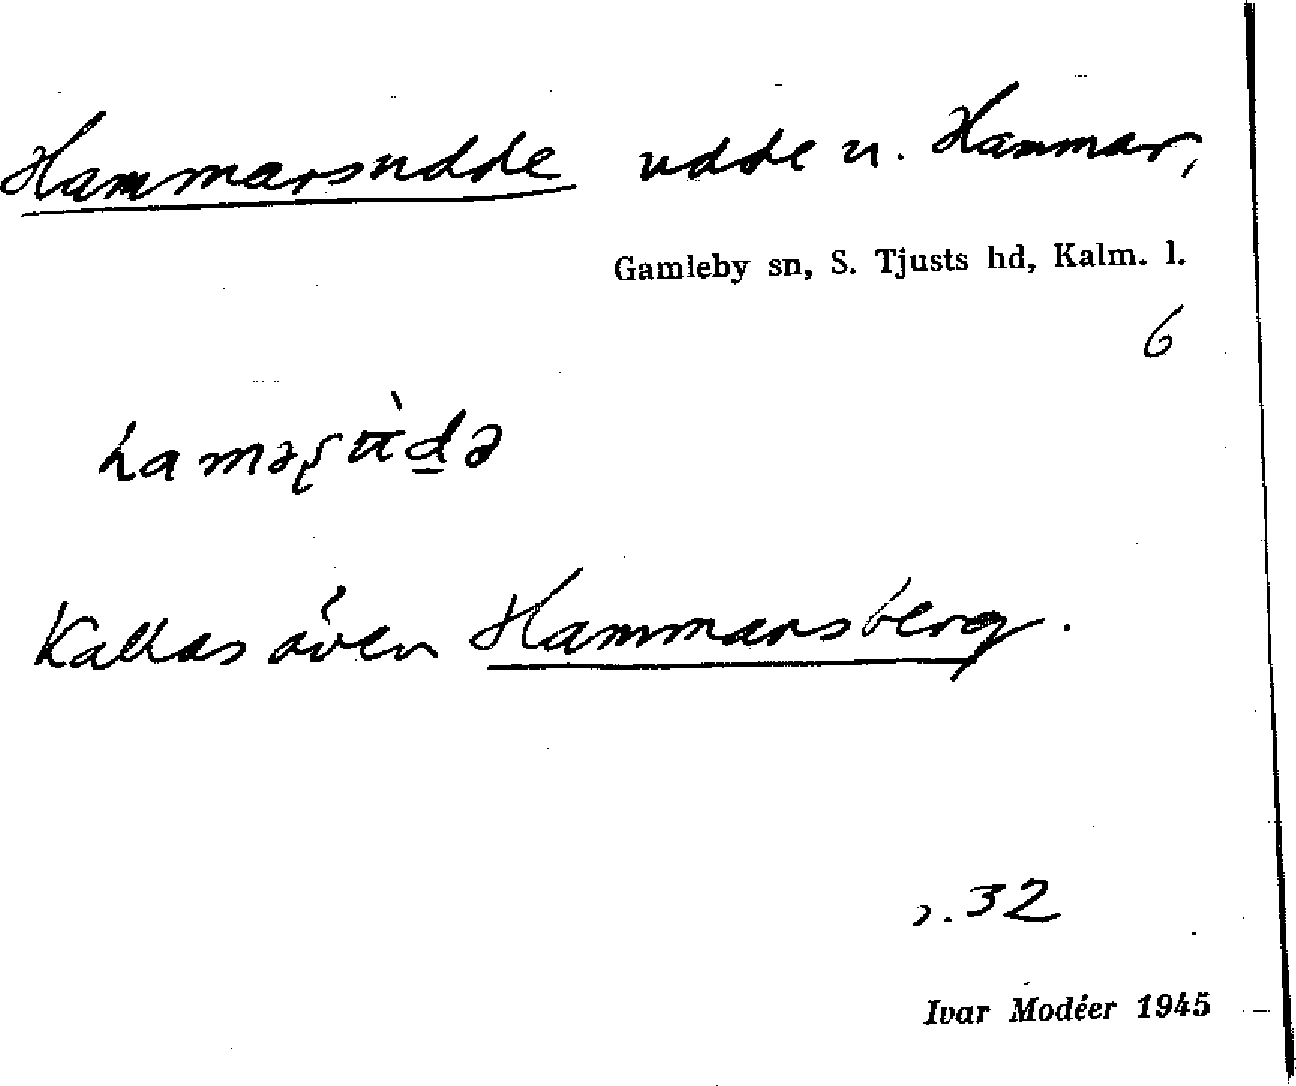 Hammarsudde udde u. Hammar,
Gamleby sn, S. Tjusts hd, Kalm. l.
6
Kallas även Hammarsberg.
s. 32
Ivar Modéer 1945